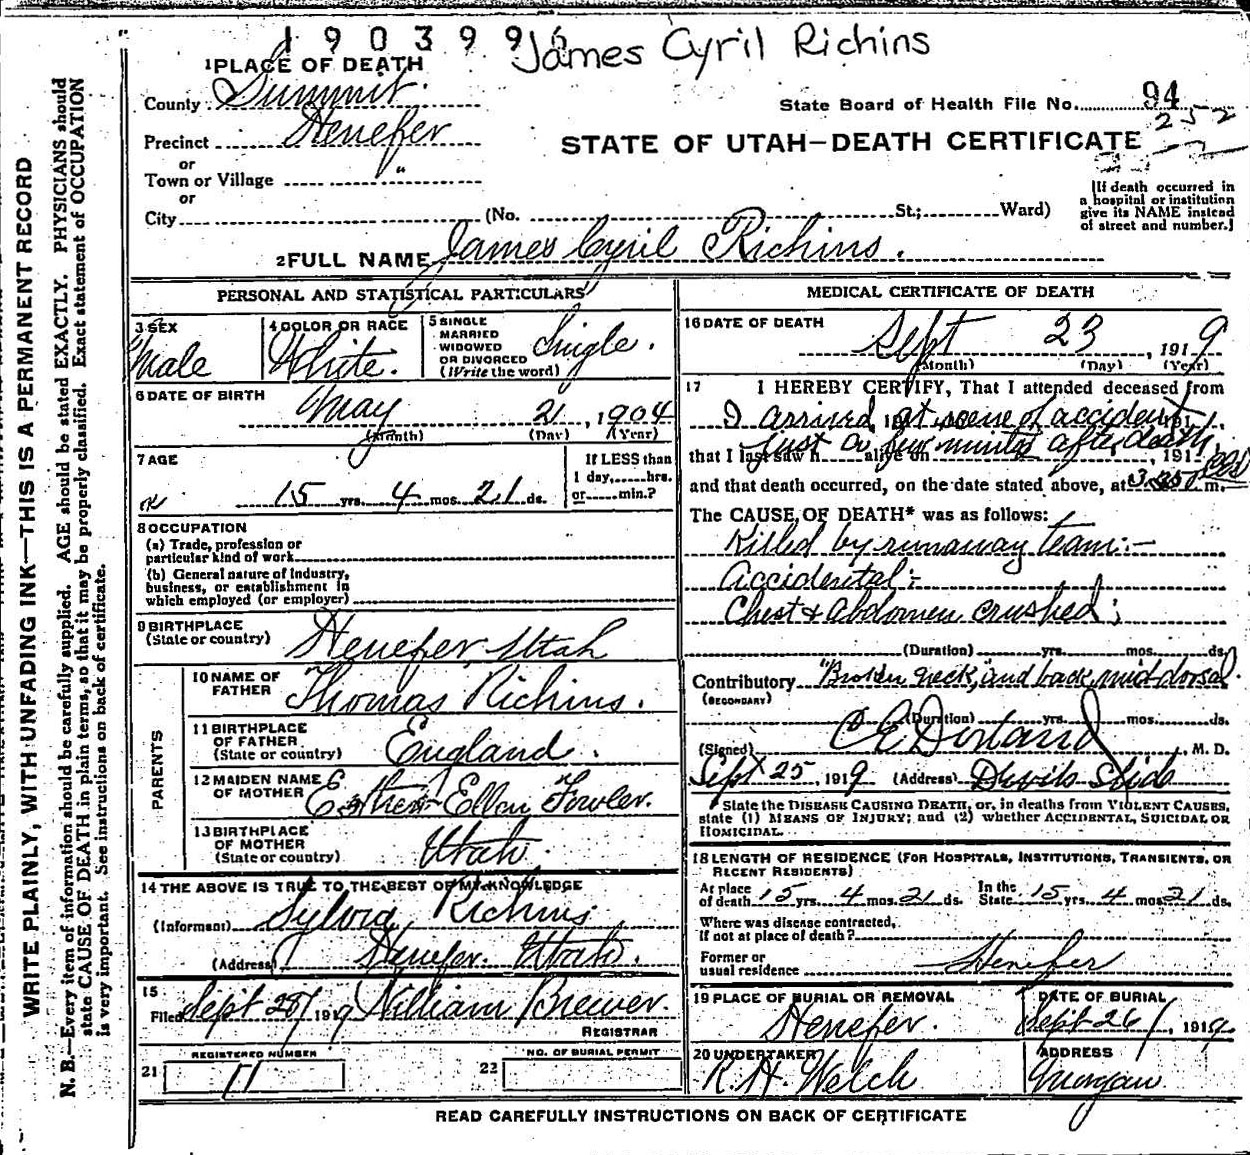 190399
James Cyril Richins
1 PLACE OF DEATH
County Summit.
State Board of Health File No. 94
252
Precinct Henefer
STATE OF UTAH—DEATH CERTIFICATE
or
Town or Village "
or
City (No. St.; Ward)
[If death occurred in
a hospital or institution
give its NAME instead
of street and number.]
2 FULL NAME James Cyril Richins.
PERSONAL AND STATISTICAL PARTICULARS
3 SEX
Male
4 COLOR OR RACE
White.
5 SINGLE
MARRIED
WIDOWED
OR DIVORCED
(Write the word)
Single.
6 DATE OF BIRTH
May 21, 1904
(Month) (Day) (Year)
7 AGE
15 yrs. 4 mos. 21 ds.
If LESS than
1 day, hrs.
or min.?
8 OCCUPATION
(a) Trade, profession or
particular kind of work
(b) General nature of industry,
business, or establishment in
which employed (or employer)
9 BIRTHPLACE
(State or country)
Henefer, Utah
PARENTS
10 NAME OF
FATHER
Thomas Richins.
11 BIRTHPLACE
OF FATHER
(State or country)
England.
12 MAIDEN NAME
OF MOTHER
Esther Ellen Fowler.
13 BIRTHPLACE
OF MOTHER
(State or country)
Utah.
14 THE ABOVE IS TRUE TO THE BEST OF MY KNOWLEDGE
(Informant) Sylvia Richins
(Address) Henefer. Utah.
15
Filed Sept 28 1919 William Brewer.
REGISTRAR
21
REGISTERED NUMBER
11
22
NO. OF BURIAL PERMIT
MEDICAL CERTIFICATE OF DEATH
16 DATE OF DEATH
Sept 23, 1919
(Month) (Day) (Year)
17 I HEREBY CERTIFY, That I attended deceased from
I arrived at scene of accident
just a few minutes after death.
that I last saw h alive on , 191
and that death occurred, on the date stated above, at m.
The CAUSE OF DEATH* was as follows:
Killed by runaway team:—
Accidental:—
Chest & Abdomen crushed;
(Duration) yrs. mos. ds.
Contributory "Broken neck," and back, mid-dorsal.
(SECONDARY)
(Duration) yrs. mos. ds.
(Signed) C E Dorland, M. D.
Sept 25, 1919 (Address) Devils Slide
*State the DISEASE CAUSING DEATH, or, in deaths from VIOLENT CAUSES,
state (1) MEANS OF INJURY; and (2) whether ACCIDENTAL, SUICIDAL OR
HOMICIDAL.
18 LENGTH OF RESIDENCE (FOR HOSPITALS, INSTITUTIONS, TRANSIENTS, OR
RECENT RESIDENTS)
At place
of death 15 yrs. 4 mos. 21 ds.
In the
State 15 yrs. 4 mos. 21 ds.
Where was disease contracted,
If not at place of death?
Former or
usual residence Henefer
19 PLACE OF BURIAL OR REMOVAL
Henefer.
DATE OF BURIAL
Sept 26, 1919
20 UNDERTAKER
R. H. Welch
ADDRESS
Morgan
READ CAREFULLY INSTRUCTIONS ON BACK OF CERTIFICATE
WRITE PLAINLY, WITH UNFADING INK—THIS IS A PERMANENT RECORD
N. B.—Every item of information should be carefully supplied. AGE should be stated EXACTLY. PHYSICIANS should
state CAUSE OF DEATH in plain terms, so that it may be properly classified. Exact statement of OCCUPATION
is very important. See instructions on back of certificate.